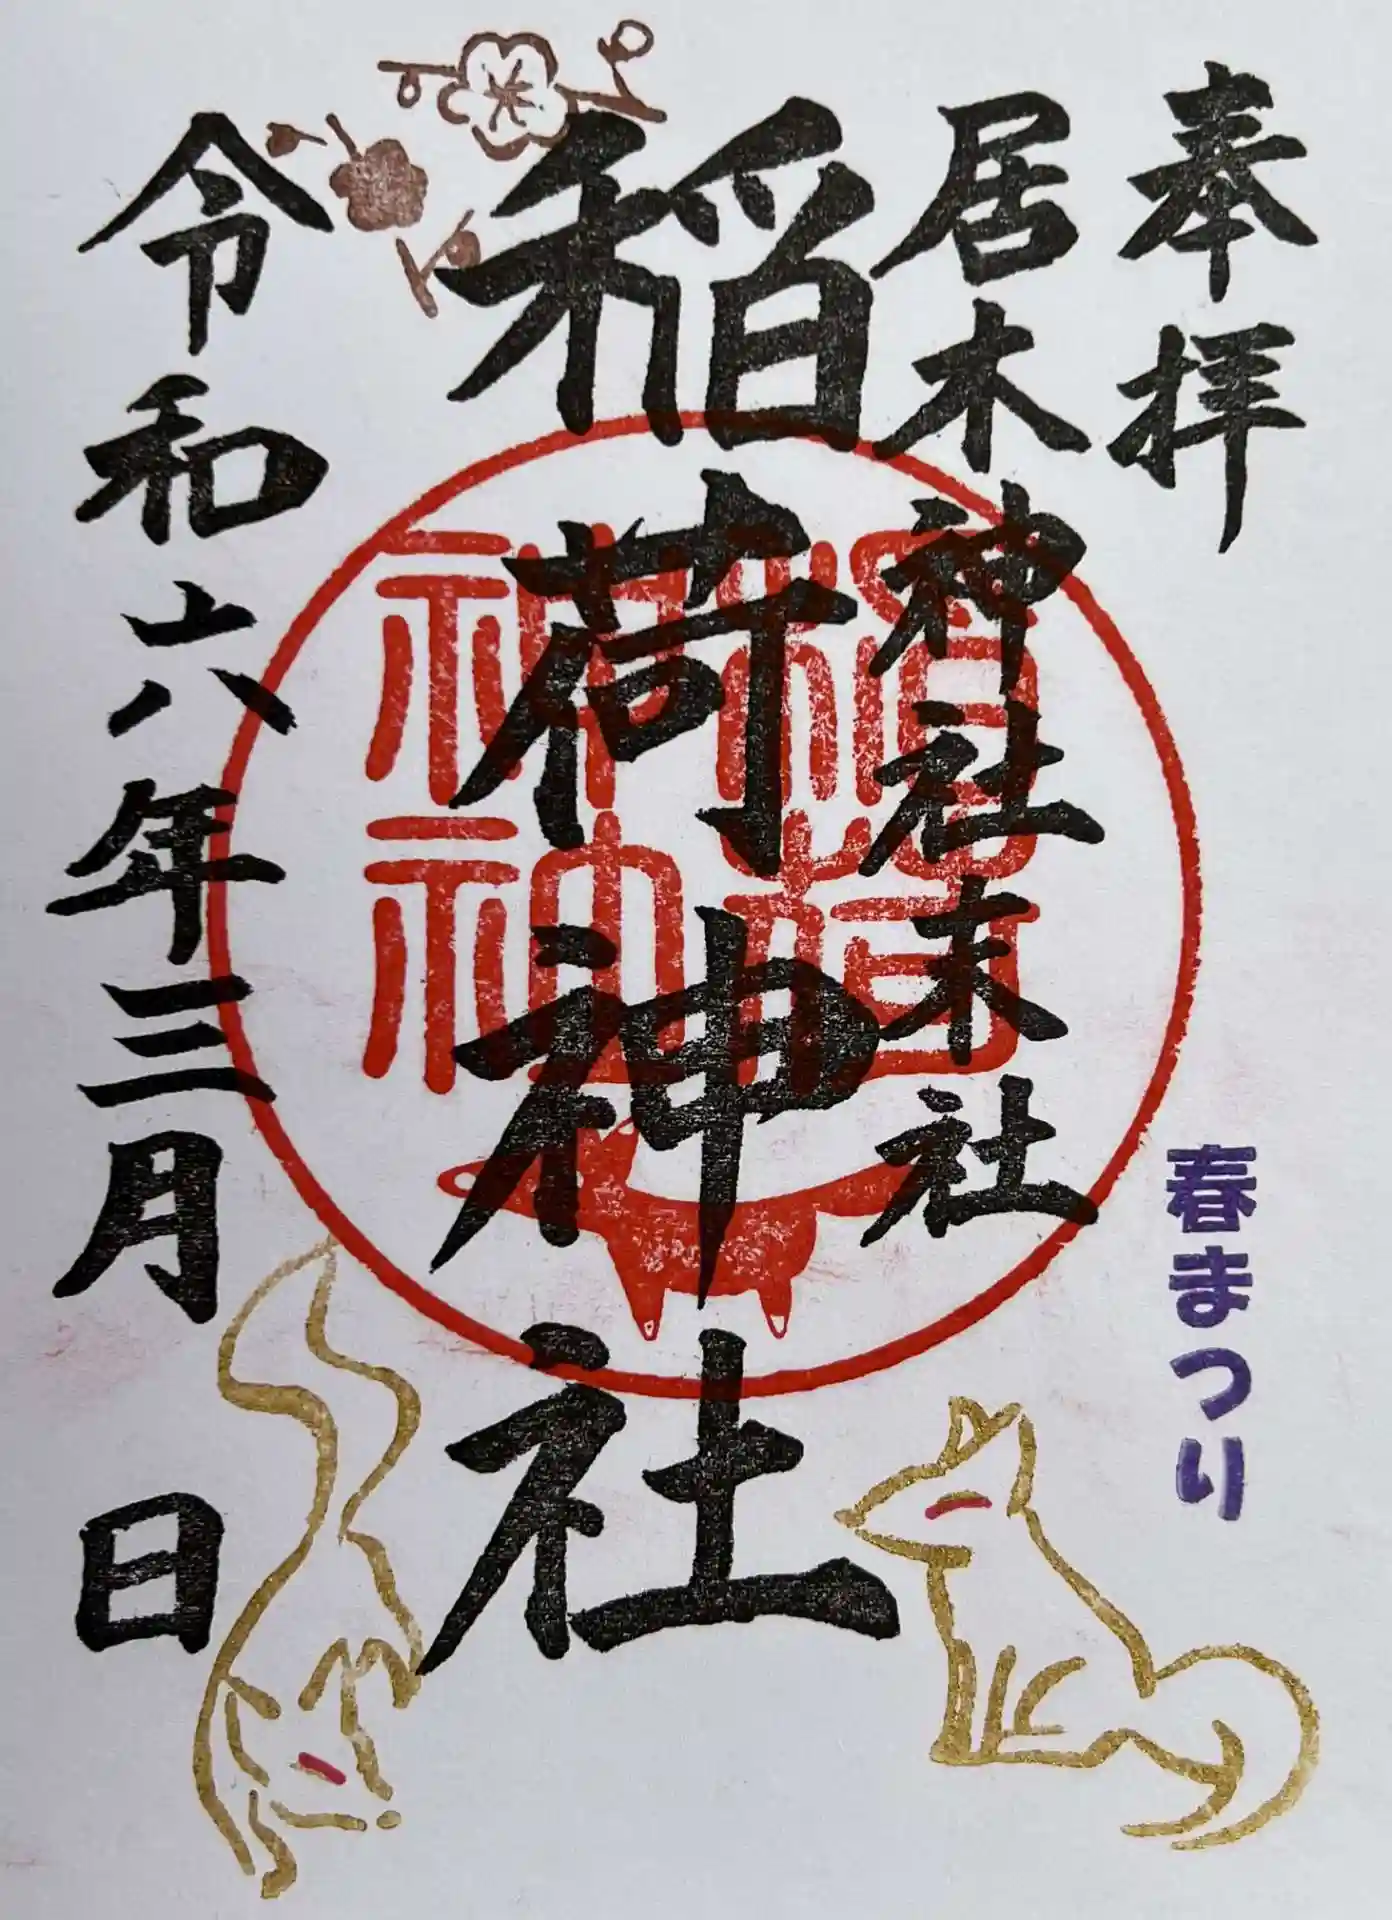 奉拝
春まつり
居木神社末社
稲荷神社
稲荷
神社
令和六年三月 日